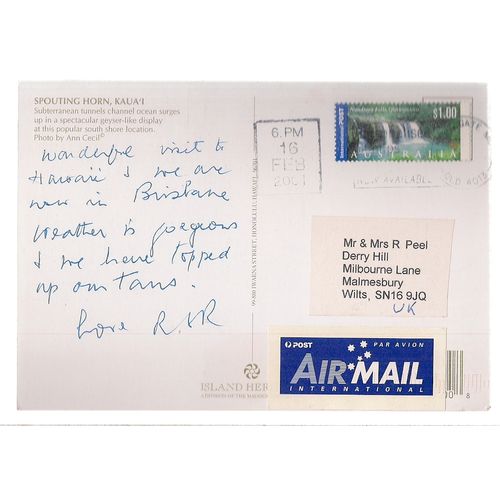 SPOUTING HORN, KAUA'I
Subterranean tunnels channel ocean surges
up in a spectacular geyser-like display
at this popular south shore location.
Photo by Ann Cecil©
wonderful visit to
Hawaii & we are
now in Brisbane
weather is gorgeous
& we have topped
up our tans.
Love R.&R
ISLAND HER
A DIVISION OF THE
99-880 IWAENA STREET, HONOLULU, HAWAI'I
6. PM
16
FEB
2001
International POST
$1.00
AUSTRALIA
NOW AVAILABLE
QLD
Mr & Mrs R Peel
Derry Hill
Milbourne Lane
Malmesbury
Wilts, SN16 9JQ
UK
POST
PAR AVION
AIR MAIL
INTERNATIONAL
00 8